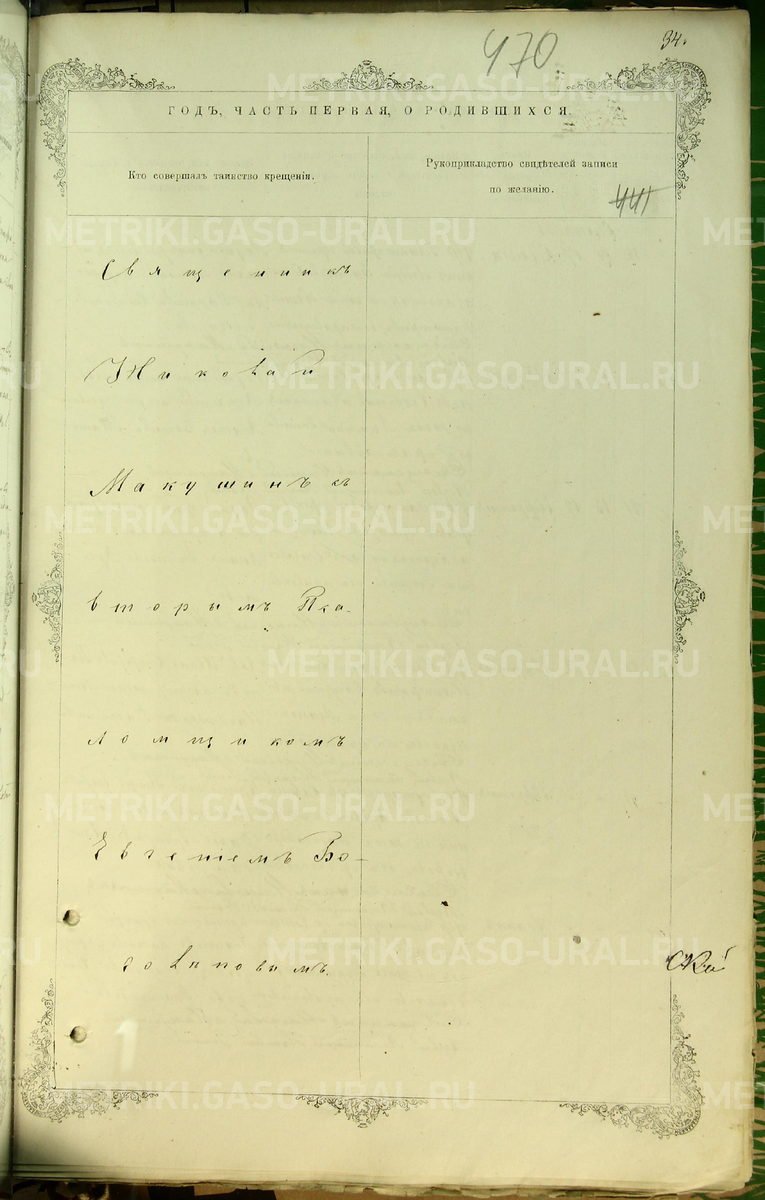 470
34.
ГОДЪ, ЧАСТЬ ПЕРВАЯ, О РОДИВШИХСЯ.
Кто совершалъ таинство крещенія.
Рукоприкладство свидѣтелей записи
по желанію.
441
Священникъ
Николай
Макушинъ съ
вторымъ Пса-
ломщикомъ
Евгеніемъ Бо-
голѣповымъ.
METRIKI.GASO-URAL.RU